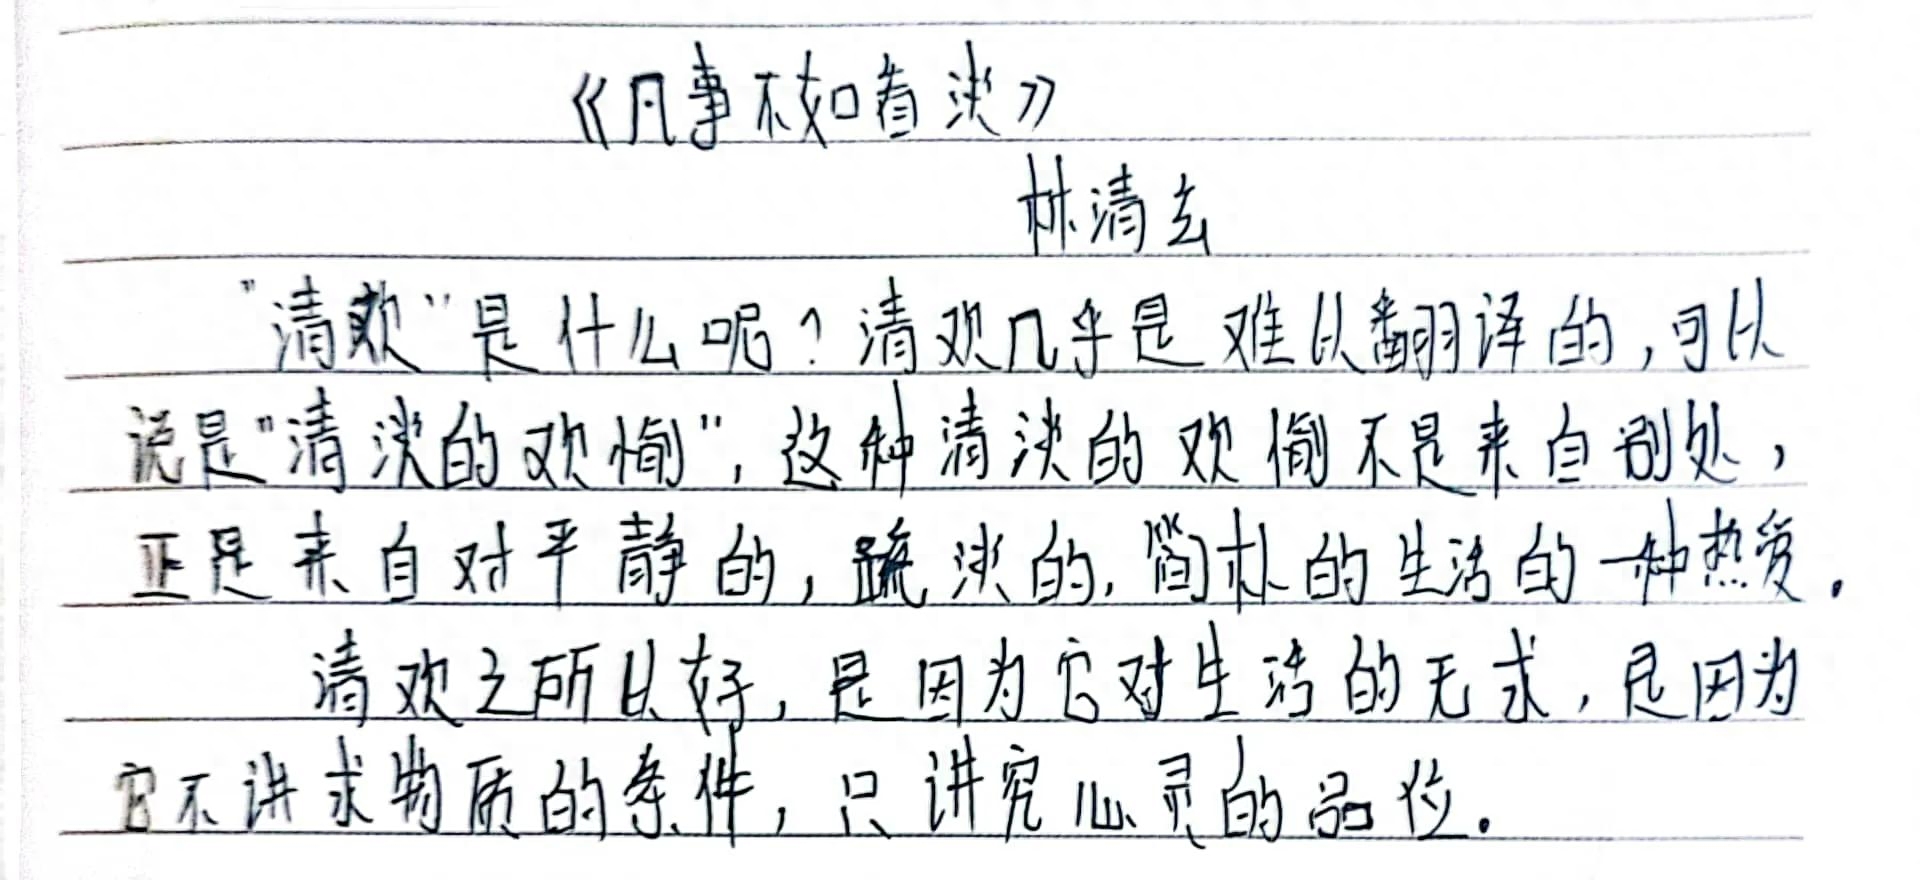 《凡事不如看淡》
林清玄
"清歡"是什么呢？清欢几乎是难以翻译的，可以
说是"清淡的欢愉"，这种清淡的欢愉不是来自别处，
正是来自对平静的，疏淡的，简朴的生活的一种热爱。
清欢之所以好，是因为它对生活的无求，是因为
它不讲求物质的条件，只讲究心灵的品位。